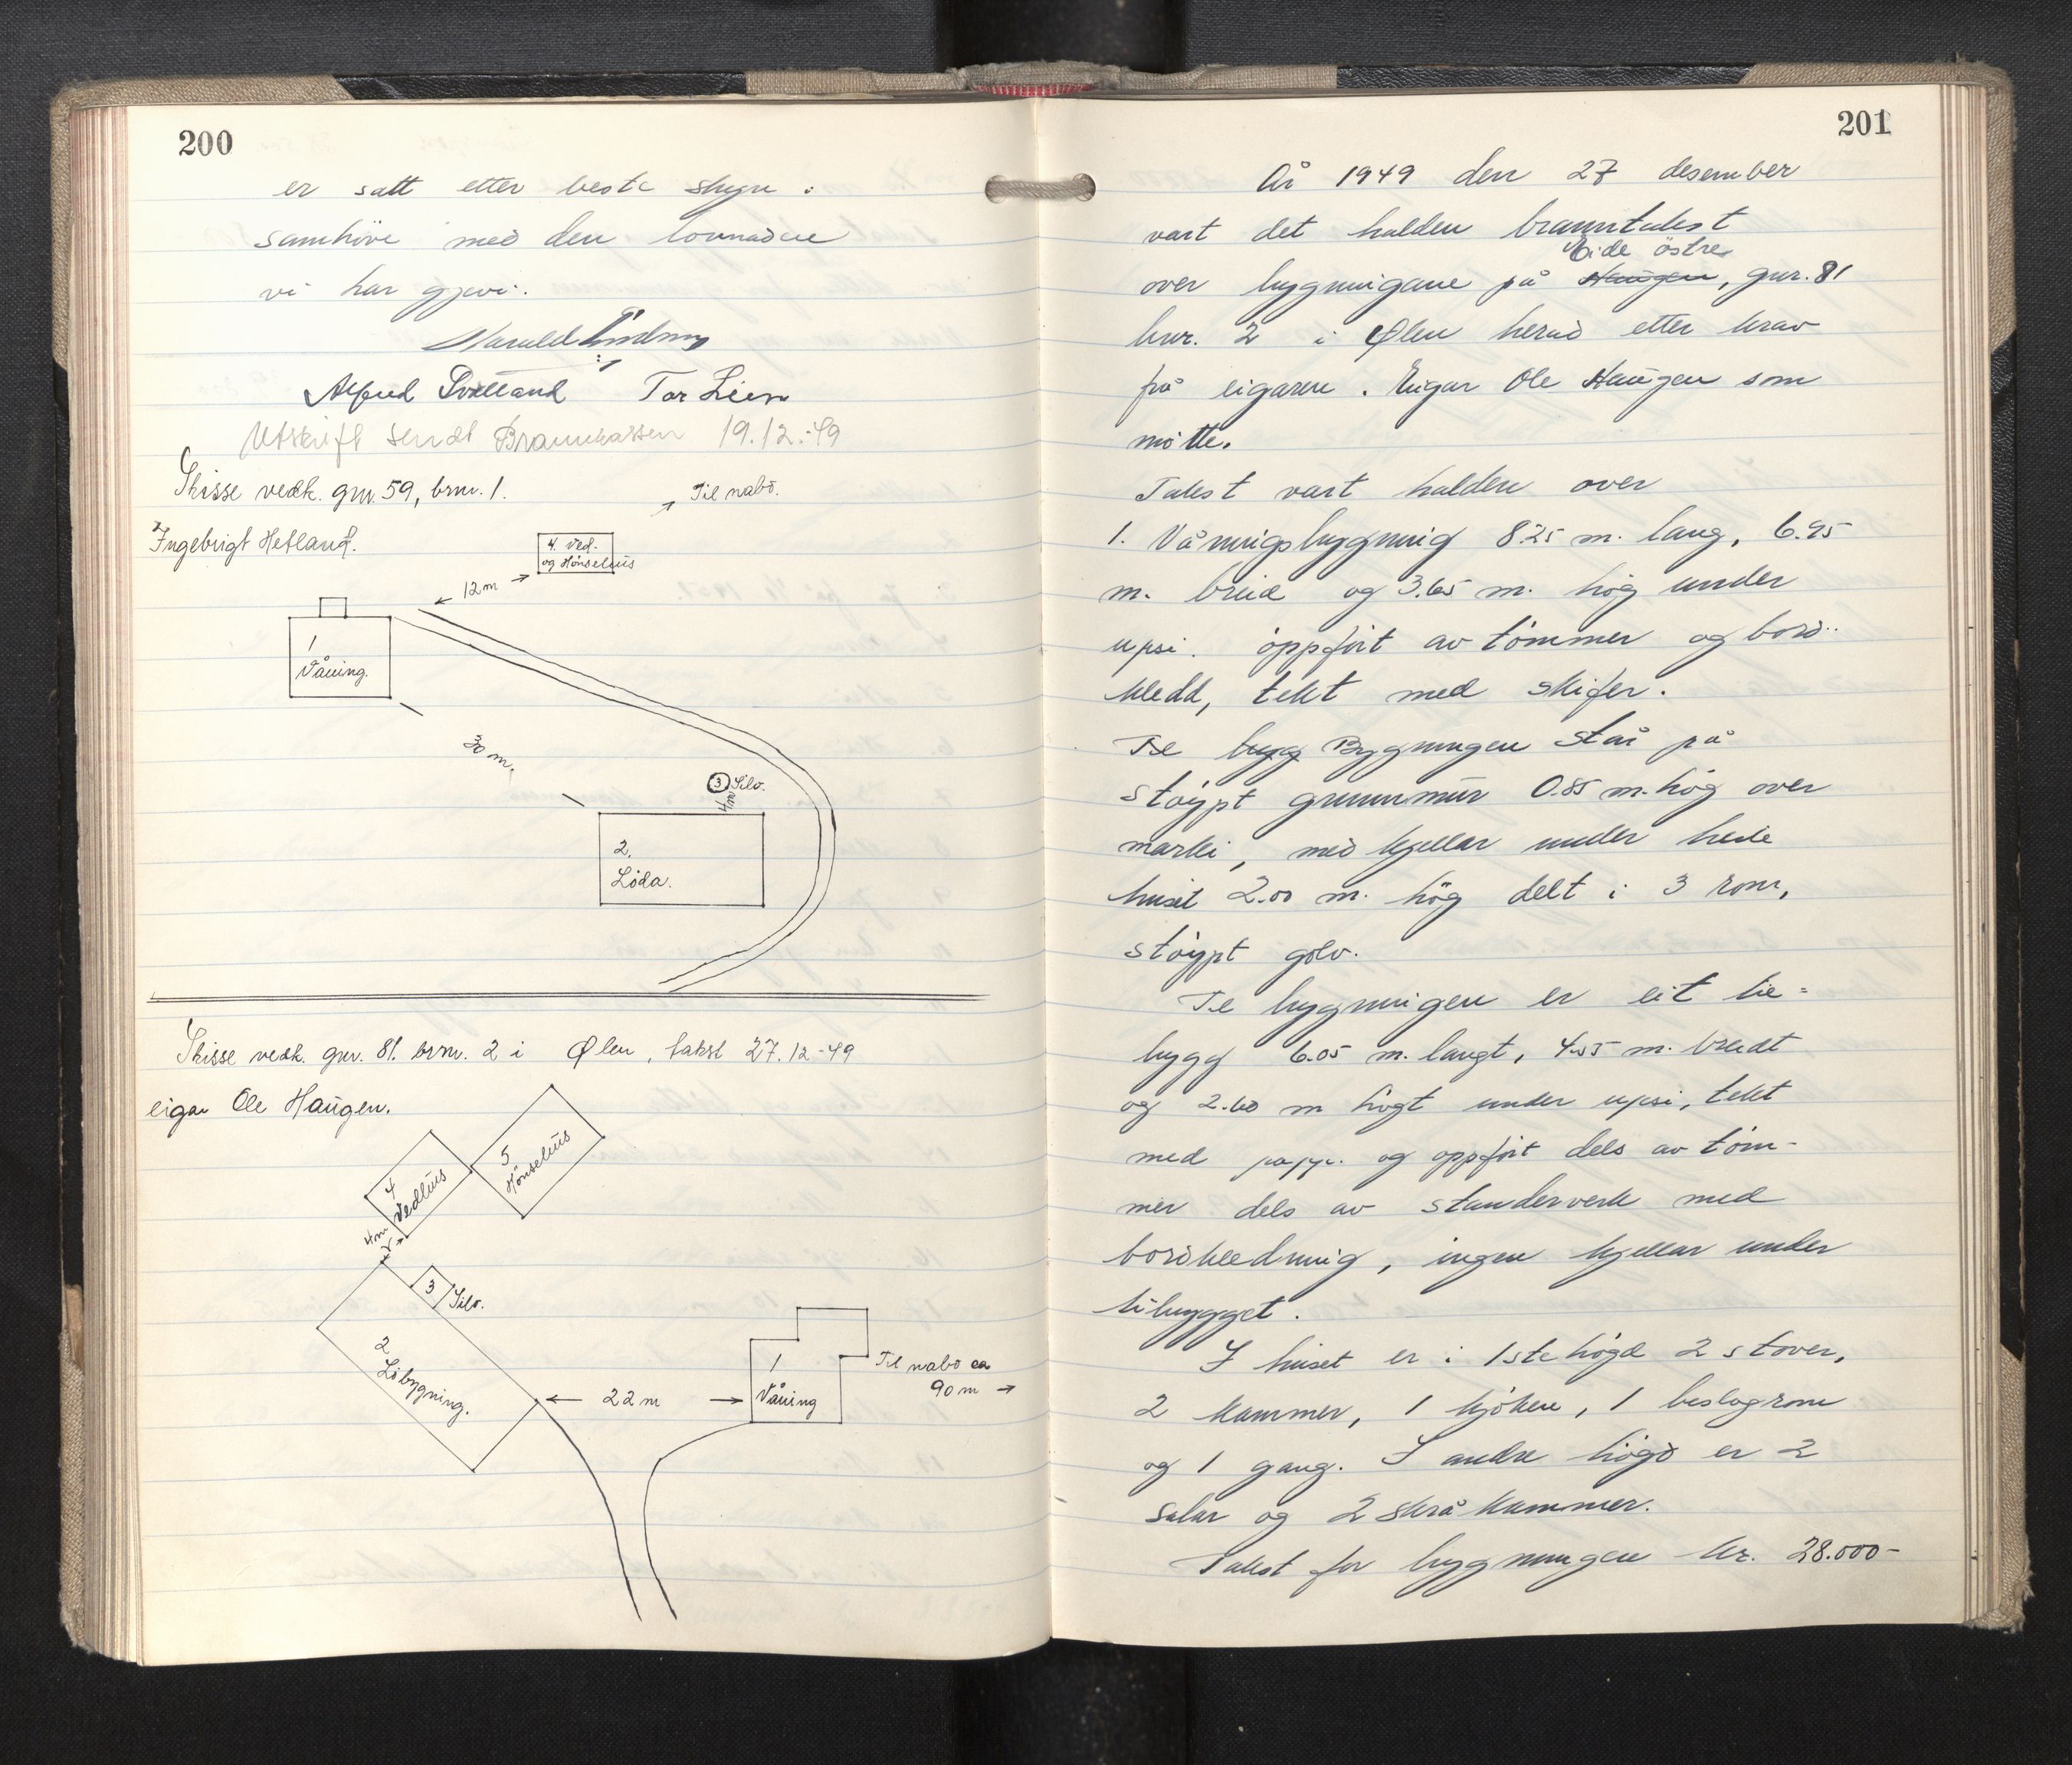 200
er satt etter beste skyn i
samhöve med den lovnaden
vi har gjevi.
Harald
Alfred Svolland Tor Lien
Utskrift sendt Brannkassen 19.12.-49
Skisse vedk. gnr. 59, brnr. 1.
Til nabo.
Ingebrigt Hetland.
4. Ved-
og Hönsehüs
12 m
1
Våning.
30 m.
3 Silo.
4m
2.
Löda.
Skisse vedk. gnr. 81. brnr. 2 i Ølen, takst 27.12-49
eigar Ole Haugen.
5
Hönsehüs
4
Vedhüs
4m
3 Silo.
2
Löbygning.
22 m
1
Våning
Til nabo ca
90 m
201
År 1949 den 27 desember
vart det halden branntakst
Eide östre
over bygningane på Haugen, gnr. 81
bnr. 2 i Ølen herad etter krav
frå eigaren. Eigar Ole Haugen som
mötte.
Takst vart halden over
1. Våningsbygning 8.25 m. lang, 6.95
m. breid og 3.65 m. hög under
upsi. oppfört av tömmer og bord-
kledd, tekt med skifer.
Til bygg Bygningen står på
stöypt grunnmür 0.85 m. hög over
marki, med kjellar under heile
huset 2.00 m. hög delt i 3 rom,
stöypt golv.
Til bygningen er eit tie-
bygg 6.05 m. langt, 4.55 m. breidt
og 2.60 m högt under upsi, tekt
med papp. og oppfört dels av töm-
mer dels av standerverk med
bordkledning, ingen kjellar under
tibygget.
I huset er i 1ste högd 2 stover,
2 kammer, 1 kjöken, 1 beslagrom
og 1 gang. I andre högd er 2
salar og 2 skråkammer.
Takst for bygningen kr. 28.000-